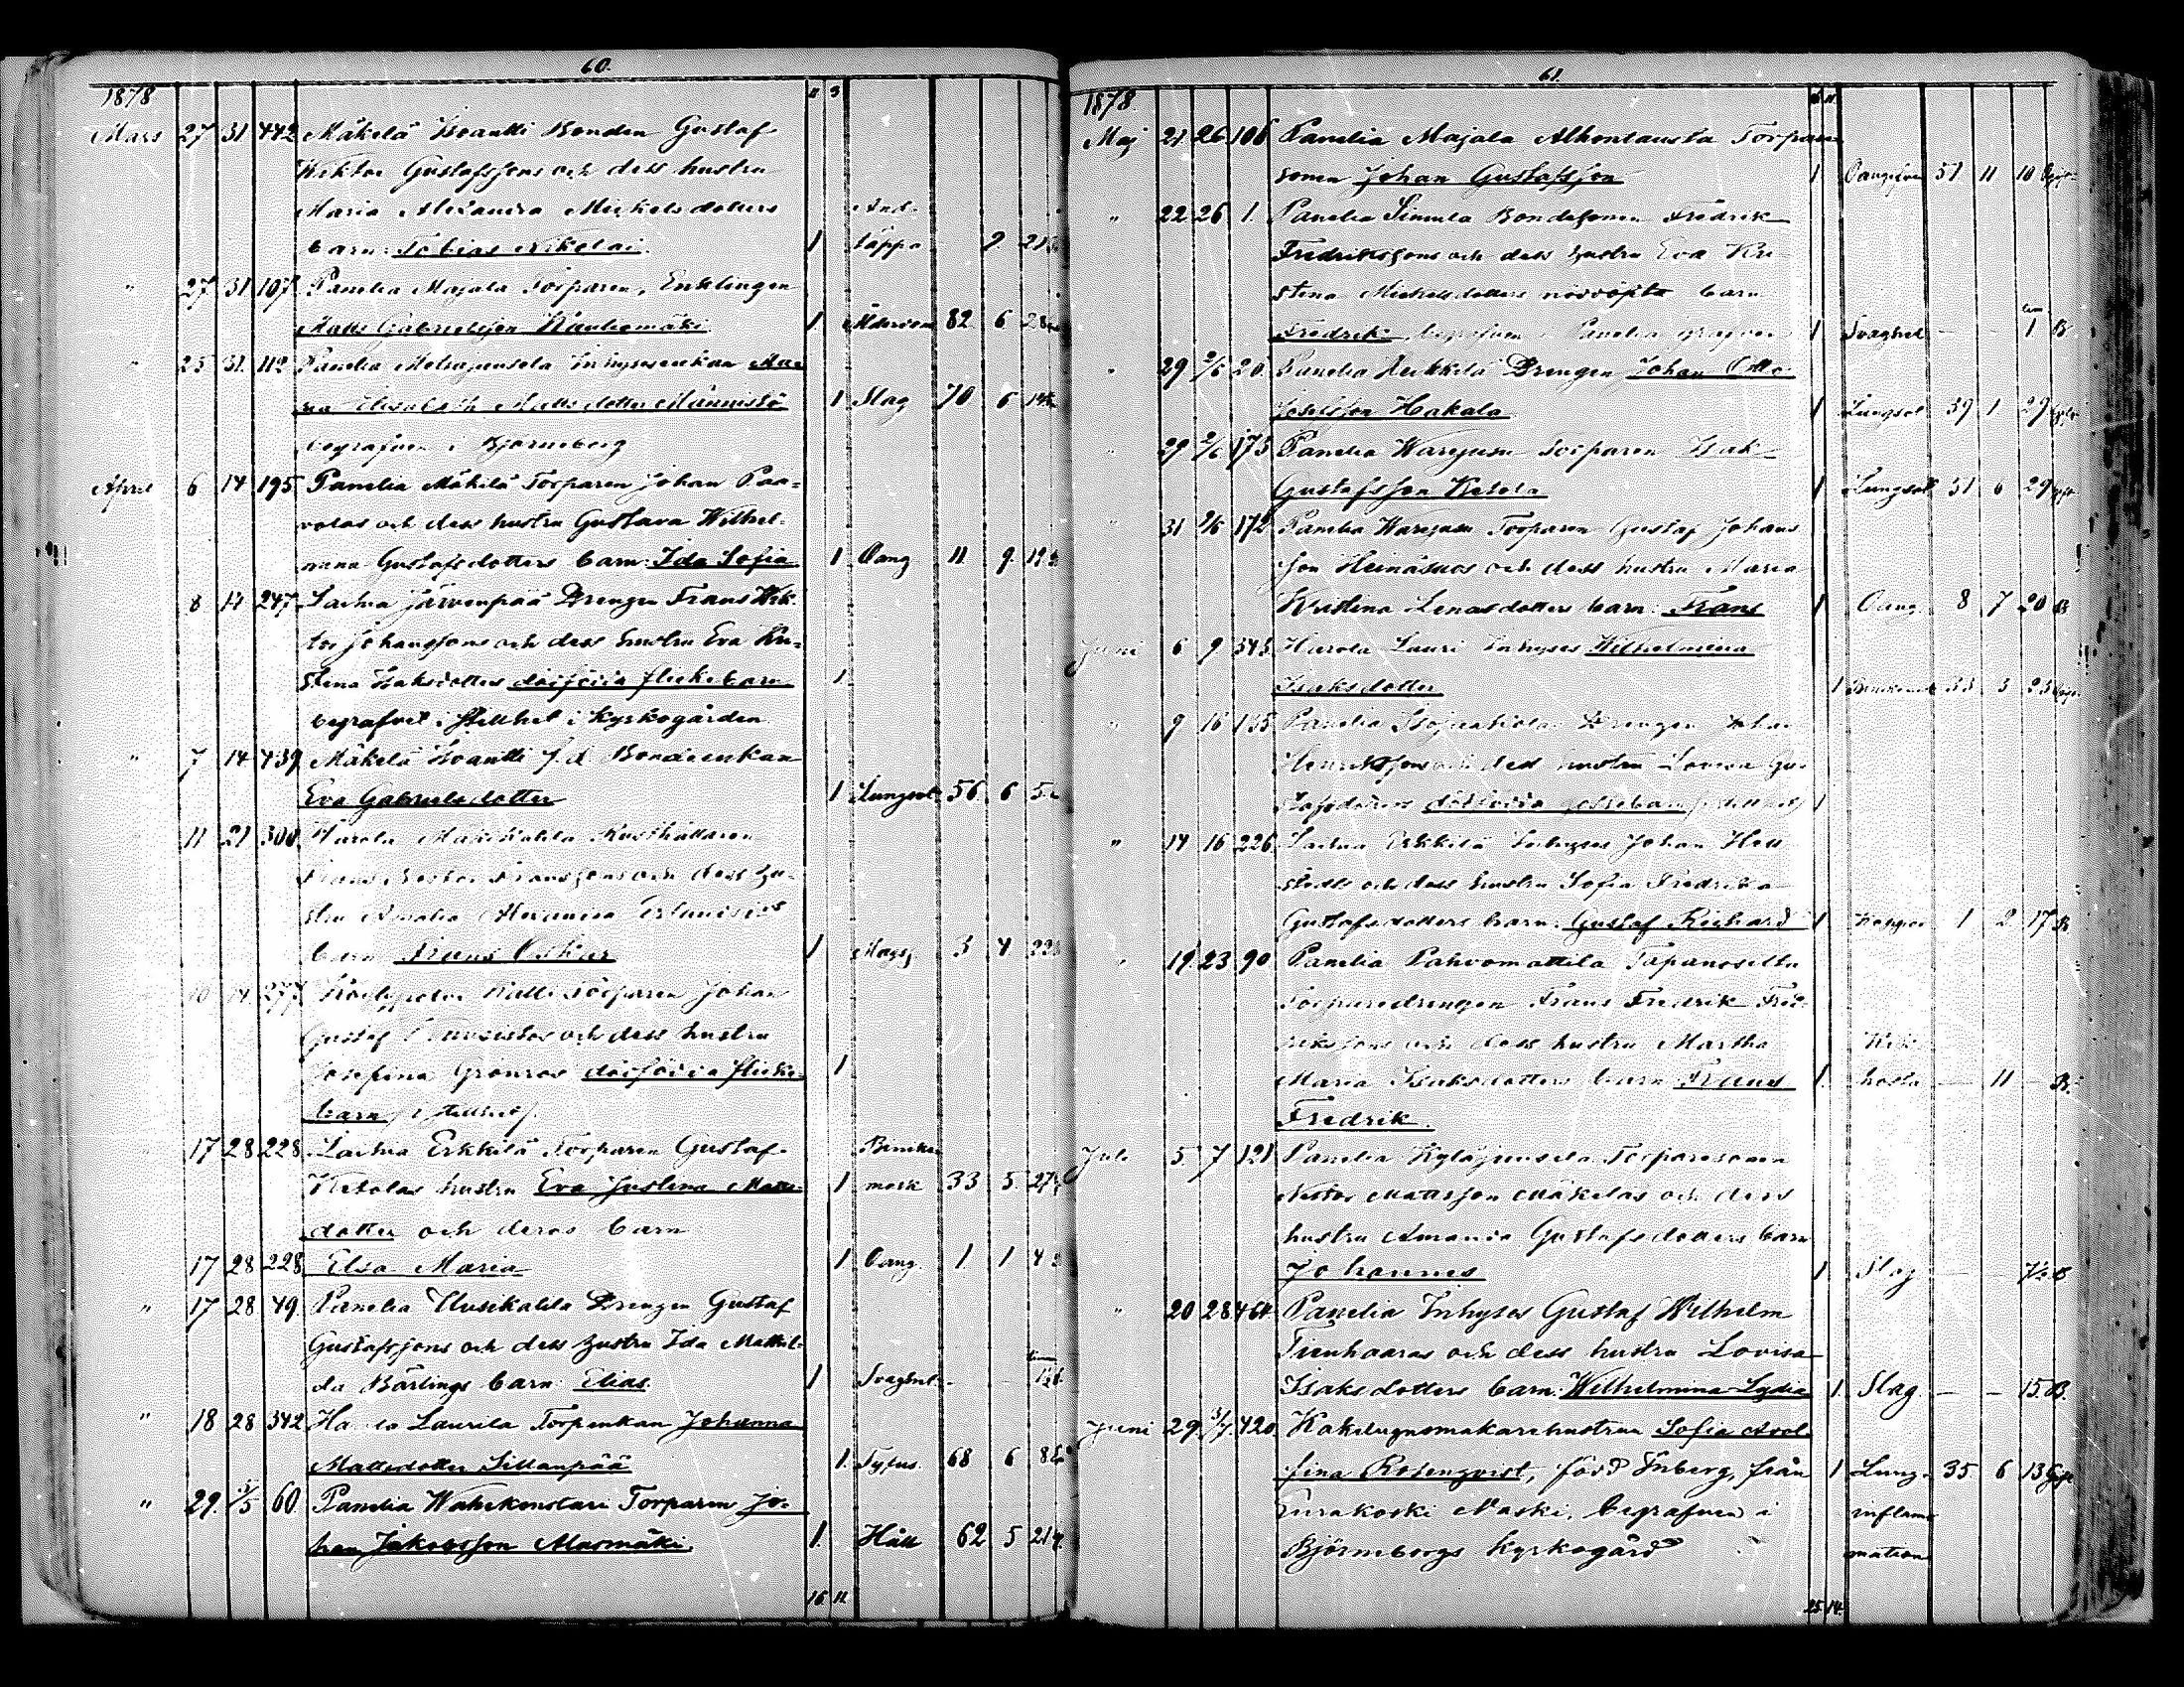 60.
1878
Mars 27 31 442 Mäkelä Knantti Bonden Gustaf
Wiktor Gustafssons och dess hustru
Maria Alexandra Mickelsdotters And-
barn: Tobias Nikolai. 1 täppa 9 21
" 27 31 107 Panelia Majala Torparen, Enklingen
Matts Gabrielsson Rauhiomäki 1 Ålderdom 82 6 28
" 25 31 112 Panelia Inhysesenkan Ma-
ria Elisabeth Mattsdotter Männistö 1 Slag 70 6
begrafven i Björneborg
April 6 14 195 Panelia Mäkilä Torparen Johan Paa-
volas och dess hustru Gustava Wilhel-
mina Gustafsdotters barn: Ida Sofia 1 Oang 11 9 19
8 14 247 Laihia Järvenpää Drengen Frans Wik-
tor Johanssons och dess hustru Eva Kri-
stina Isaksdotters dödfödda flickebarn 1
begrafvet i stillhet i Kyrkogården
" 7 14 439 Mäkelä Knantti f.d. Bondeenkan
Eva Gabrielsdotter 1 Lungsot 56 6 5
11 21 300 Harola Rusthållaren
Frans Nestor Franssons och dess hu-
stru Amalia Alexandra
barn Frans Oskar 1 Mags. 3 4 22
10 14 277 Torparen Johan
Gustaf och dess hustru
Josefina Grönroos dödfödda flicke- 1
barn / i stillhet /
17 28 228 Laihia Erkkilä Torparen Gustaf Bensken
Ketolas hustru Eva Justina Matts- 1 mark 33 5 27
dotter och deras barn
17 28 228 Elsa Maria 1 Oang. 1 1 4
" 17 28 49. Panelia Uusikaltila Drengen Gustaf
Gustafssons och dess hustru Ida Mathil-
da Bärlings barn: Elias 1 Svaghet - -
" 18 28 342 Harola Laurila Torpenkan Johanna
Mattsdotter Sillanpää 1. Tyfus. 68 6 8
" 29. 5/5 60. Panelia Torparen Jo-
han Jakobsson Alasmäki. 1. Håll 62 5 21
16 11
61.
1878.
Maj 21 26 106 Panelia Majala Alhontausta Torpare
sonen Johan Gustafsson 1 51 11 10
" 22 26 1. Panelia Simula Bondesonen Fredrik
Fredrikssons och dess hustru Eva Kri-
stina Mickelsdotters nöddöpta barn
Fredrik, begrafven i Panelia grafven 1 Svaghet - - 1 B.
" 29 2/6 20. Panelia Heikkilä Drengen Johan Otto
Josefsson Hakala 1 Lungsot 39 1 29
" 29 2/6 173 Panelia Warejusu Torparen Isak
Gustafsson Ketola 1 Lungsot 51 6 29
" 31 2/6 172 Panelia Warejusu Torparen Gustaf Johans
son Heinäsuos och dess hustru Maria
Kristina Lenasdotters barn: Frans 1 Oang. 8 7 20 B.
Juni 6 9 343. Harola Lauri Inhyses Wilhelmina
Isaksdotter 1 33 3 23
" 9 16 135 Panelia Drengen Johan
Henrikssons och dess hustru Lovisa Gu-
stafsdotters dödfödda gossebarn (i stillhet) 1
" 14 16 226. Laihia Erkkilä Inhyses Johan Hell
stedts och dess hustru Sofia Fredrika
Gustafsdotters barn: Gustaf Richard 1 Koppor 1 2 17 B.
" 19. 23 90 Panelia Pahvomattila Tapanosilta
Torparedrengen Frans Fredrik Fred-
rikssons och dess hustru Martha Kik-
Maria Isaksdotters barn Frans 1. hosta - 11 - B.
Fredrik.
Juli 5 7 121 Panelia Kyläjuusela Torparesonen
Nestor Mattsson Mäkeläs och dess
hustru Amanda Gustafsdotters barn
Johannes 1 Slag - - B
" 20 28 464. Panelia Inhyses Gustaf Wilhelm
Tienhaaras och dess hustru Lovisa
Isaksdotters barn: Wilhelmina Lydia 1. Slag - - 15. B.
Juni 29. 3/7. 420. Kakelugnsmakarehustrun Sofia Adol-
fina Rosenqvist, född Enberg, från 1 Lung- 35 6 13
Nurakoski Naski, begrafven i inflam-
Björneborgs kyrkogård mation
25 14.